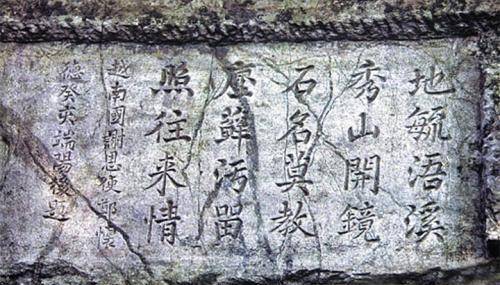 地毓浯溪
秀山開鏡
石名莫教
塵蘚汚留
照往来情
越南國謝恩使鄭懷
德癸亥端陽後題